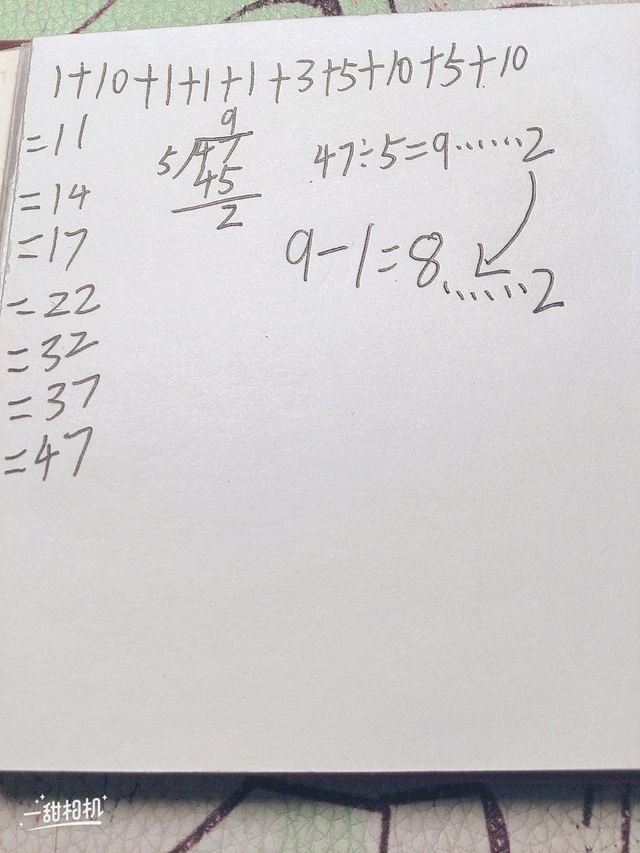 1+10+1+1+1+3+5+10+5+10
=11
=14
=17
=22
=32
=37
=47
9
5/47
45
2
47÷5=9……2
9-1=8……2
一甜相机